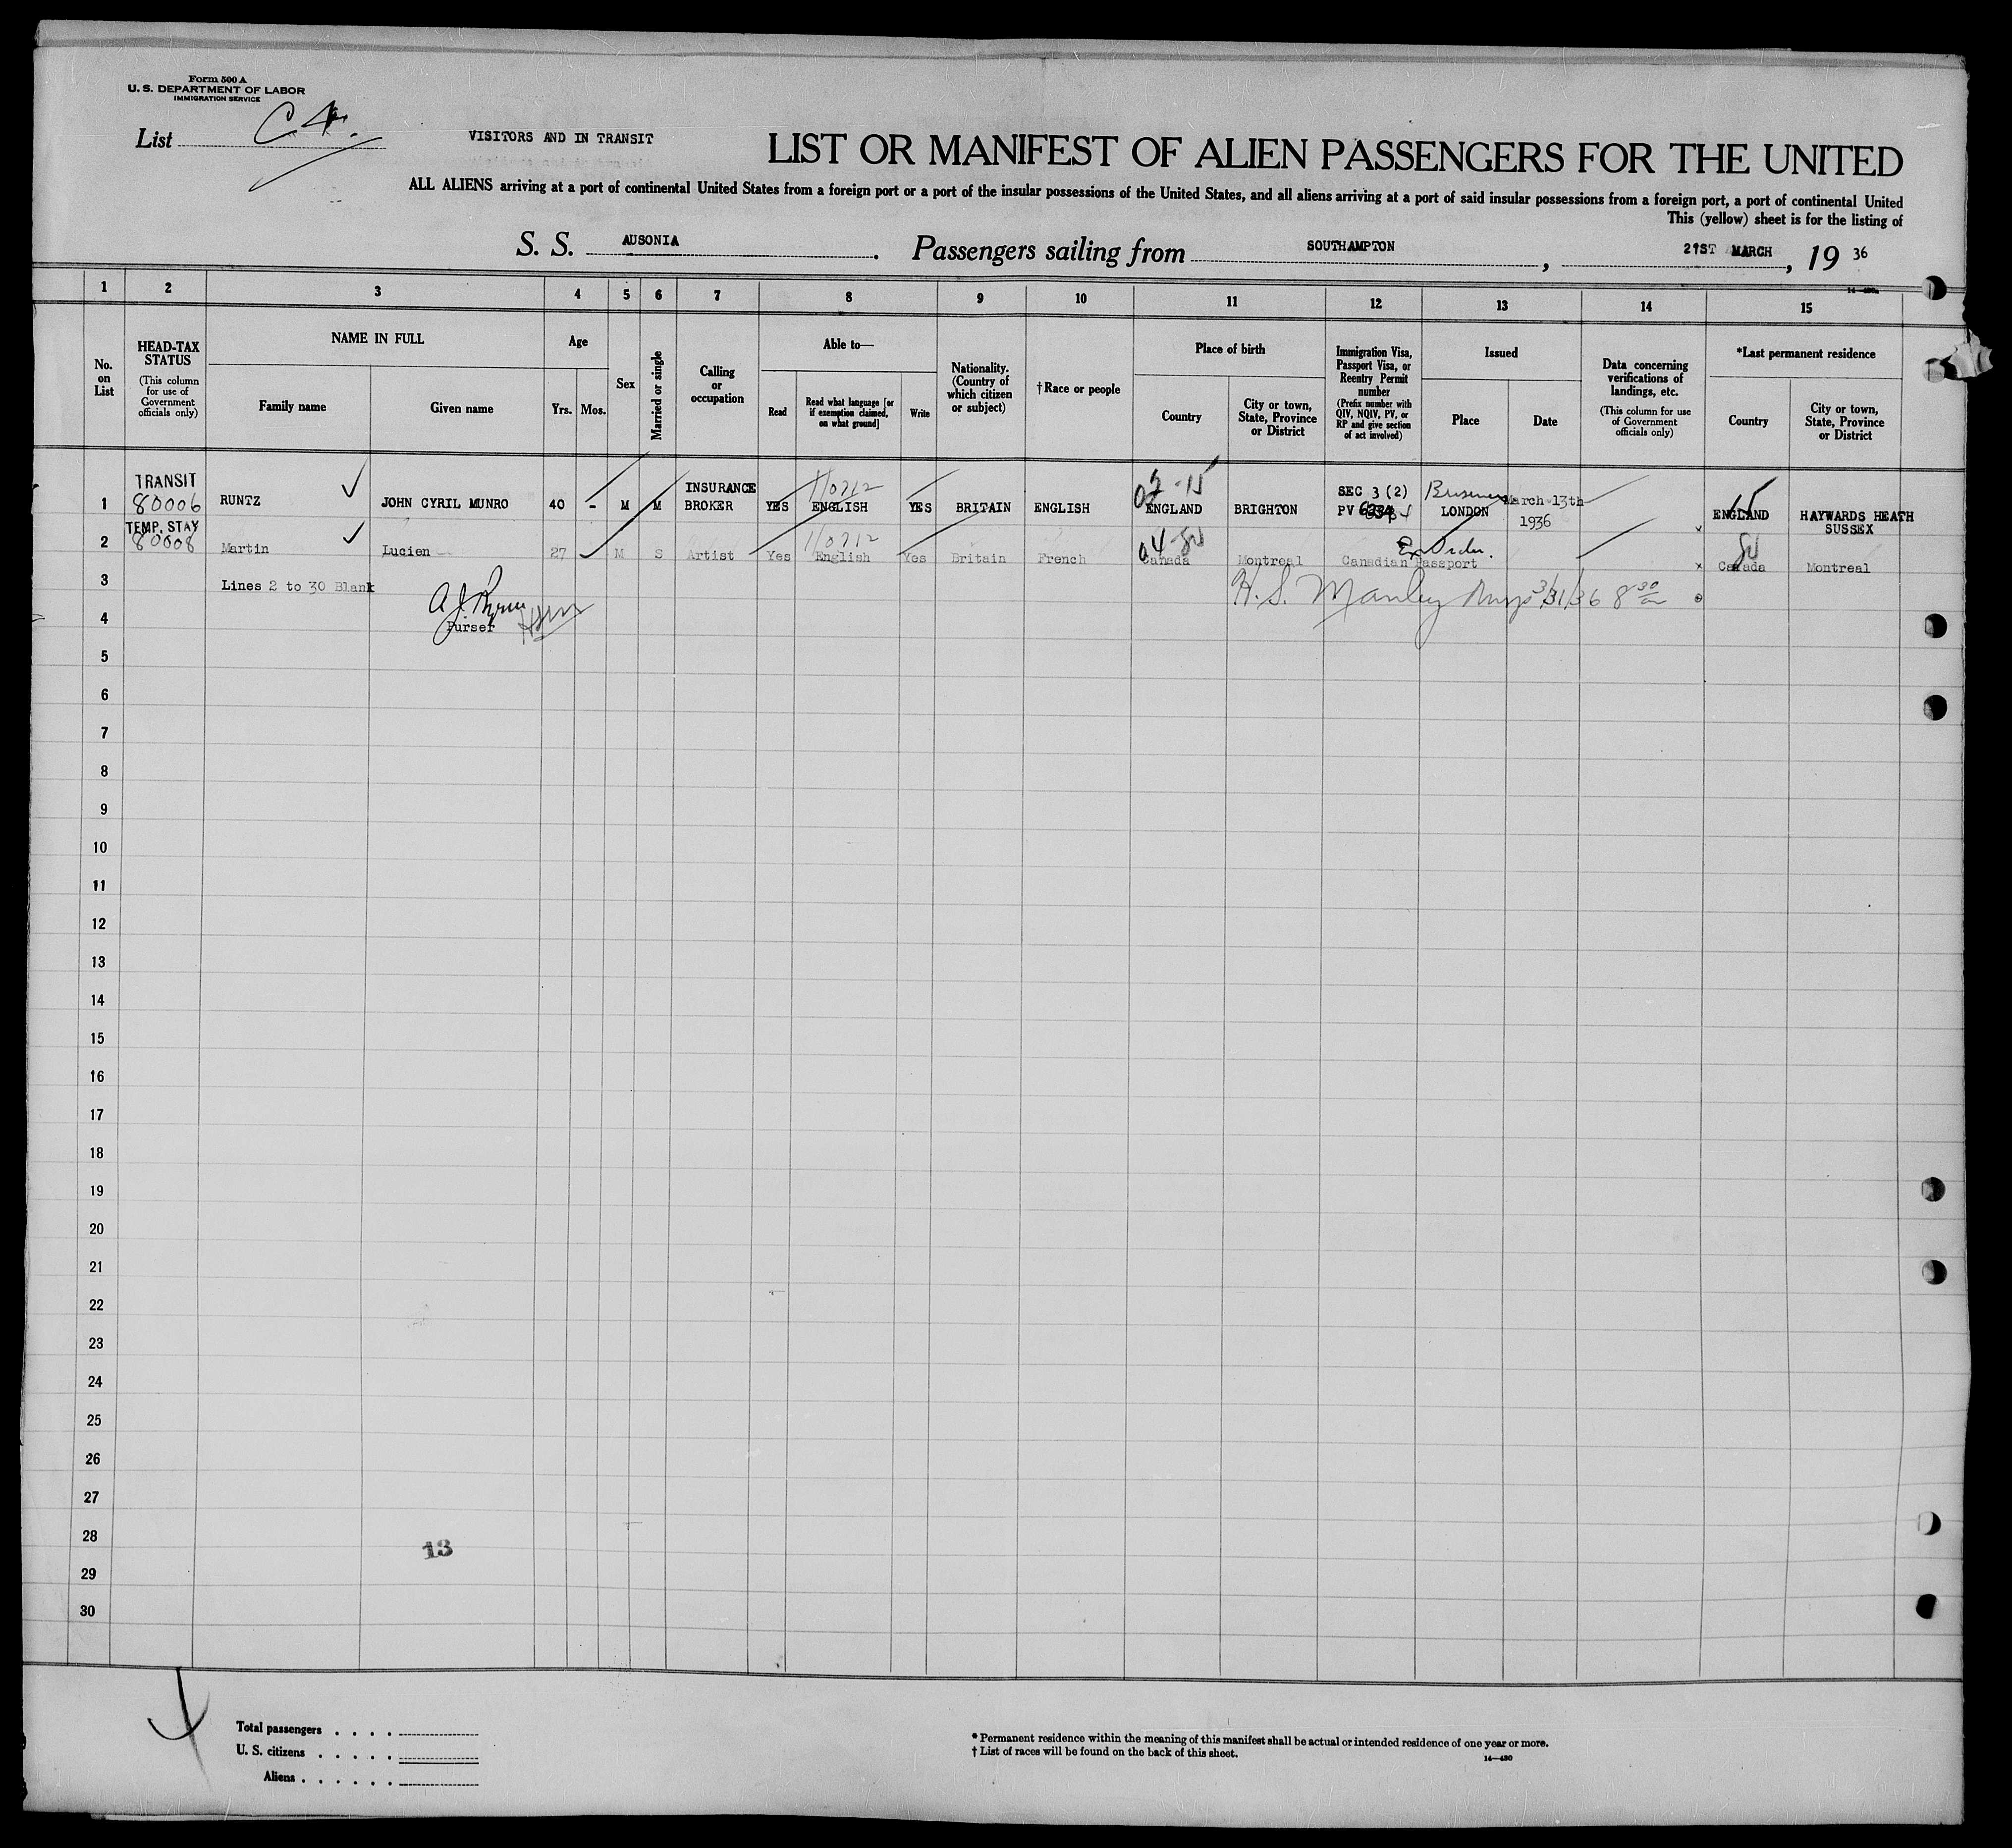 Form 500 A
U. S. DEPARTMENT OF LABOR
IMMIGRATION SERVICE
List C 4.
VISITORS AND IN TRANSIT
LIST OR MANIFEST OF ALIEN PASSENGERS FOR THE UNITED
ALL ALIENS arriving at a port of continental United States from a foreign port or a port of the insular possessions of the United States, and all aliens arriving at a port of said insular possessions from a foreign port, a port of continental United
This (yellow) sheet is for the listing of
S. S. AUSONIA. Passengers sailing from SOUTHAMPTON, 21ST MARCH, 19 36
14—480a
1 2 3 4 5 6 7 8 9 10 11 12 13 14 15
No. on List
HEAD-TAX STATUS
(This column for use of Government officials only)
NAME IN FULL
Family name
Given name
Age
Yrs. Mos.
Sex
Married or single
Calling or occupation
Able to—
Read
Read what language [or if exemption claimed, on what ground]
Write
Nationality. (Country of which citizen or subject)
†Race or people
Place of birth
Country
City or town, State, Province or District
Immigration Visa, Passport Visa, or Reentry Permit number
(Prefix number with QIV, NQIV, PV, or RP and give section of act involved)
Issued
Place
Date
Data concerning verifications of landings, etc.
(This column for use of Government officials only)
*Last permanent residence
Country
City or town, State, Province or District
1 TRANSIT 80006 RUNTZ JOHN CYRIL MUNRO 40 - M M INSURANCE BROKER YES ENGLISH YES BRITAIN ENGLISH ENGLAND BRIGHTON SEC 3 (2) PV LONDON March 13th 1936 ENGLAND HAYWARDS HEATH SUSSEX
110712
15
2 TEMP. STAY 80008 Martin Lucien 27 M S Artist Yes English Yes Britain French Canada Montreal Canadian Passport Canada Montreal
110712
Ex Order.
3 Lines 2 to 30 Blank
H. S. Manley 3/31/36 8 30
4 Purser
5
6
7
8
9
10
11
12
13
14
15
16
17
18
19
20
21
22
23
24
25
26
27
28
13
29
30
Total passengers . . . .
U. S. citizens . . . . .
Aliens . . . . . .
* Permanent residence within the meaning of this manifest shall be actual or intended residence of one year or more.
† List of races will be found on the back of this sheet.
14—480